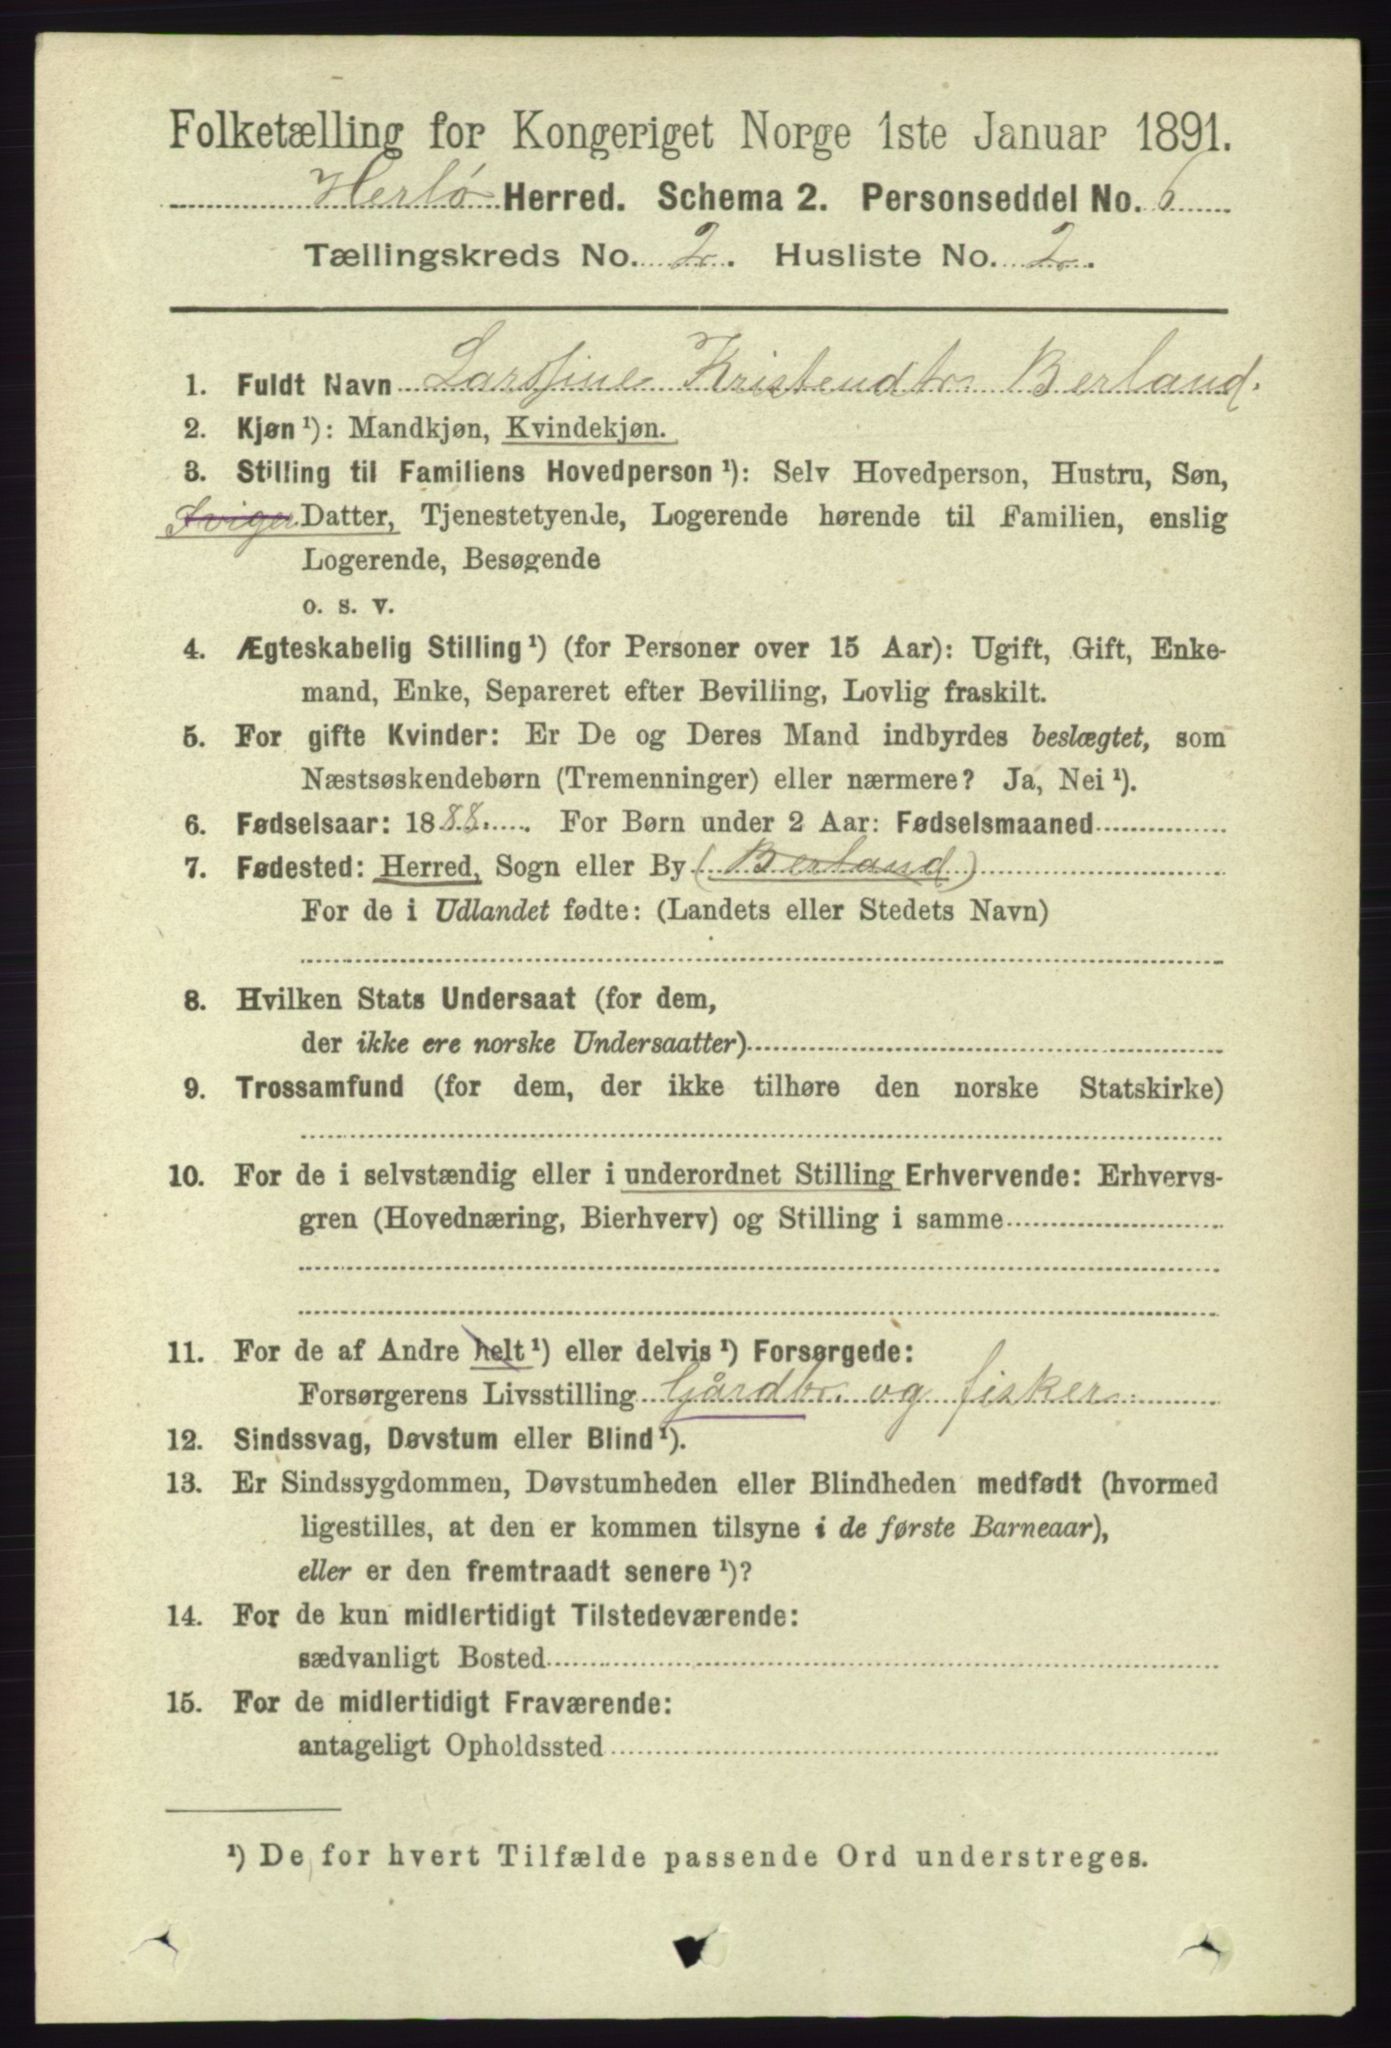 Folketælling for Kongeriget Norge 1ste Januar 1891.
Herlø Herred. Schema 2. Personseddel No. 6
Tællingskreds No. 2. Husliste No. 2.
1. Fuldt Navn Larsine Kristendtr Berland.
2. Kjøn ¹): Mandkjøn, Kvindekjøn.
3. Stilling til Familiens Hovedperson ¹): Selv Hovedperson, Hustru, Søn,
Sviger Datter, Tjenestetyende, Logerende hørende til Familien, enslig
Logerende, Besøgende
o. s. v.
4. Ægteskabelig Stilling ¹) (for Personer over 15 Aar): Ugift, Gift, Enke-
mand, Enke, Separeret efter Bevilling, Lovlig fraskilt.
5. For gifte Kvinder: Er De og Deres Mand indbyrdes beslægtet, som
Næstsøskendebørn (Tremenninger) eller nærmere? Ja, Nei ¹).
6. Fødselsaar: 1888. For Børn under 2 Aar: Fødselsmaaned
7. Fødested: Herred, Sogn eller By (Berland)
For de i Udlandet fødte: (Landets eller Stedets Navn)
8. Hvilken Stats Undersaat (for dem,
der ikke ere norske Undersaatter)
9. Trossamfund (for dem, der ikke tilhøre den norske Statskirke)
10. For de i selvstændig eller i underordnet Stilling Erhvervende: Erhvervs-
gren (Hovednæring, Bierhverv) og Stilling i samme
11. For de af Andre helt ¹) eller delvis ¹) Forsørgede:
Forsørgerens Livsstilling Gårdbr. og fisker
12. Sindssvag, Døvstum eller Blind ¹).
13. Er Sindssygdommen, Døvstumheden eller Blindheden medfødt (hvormed
ligestilles, at den er kommen tilsyne i de første Barneaar),
eller er den fremtraadt senere ¹)?
14. For de kun midlertidigt Tilstedeværende:
sædvanligt Bosted
15. For de midlertidigt Fraværende:
antageligt Opholdssted
¹) De for hvert Tilfælde passende Ord understreges.